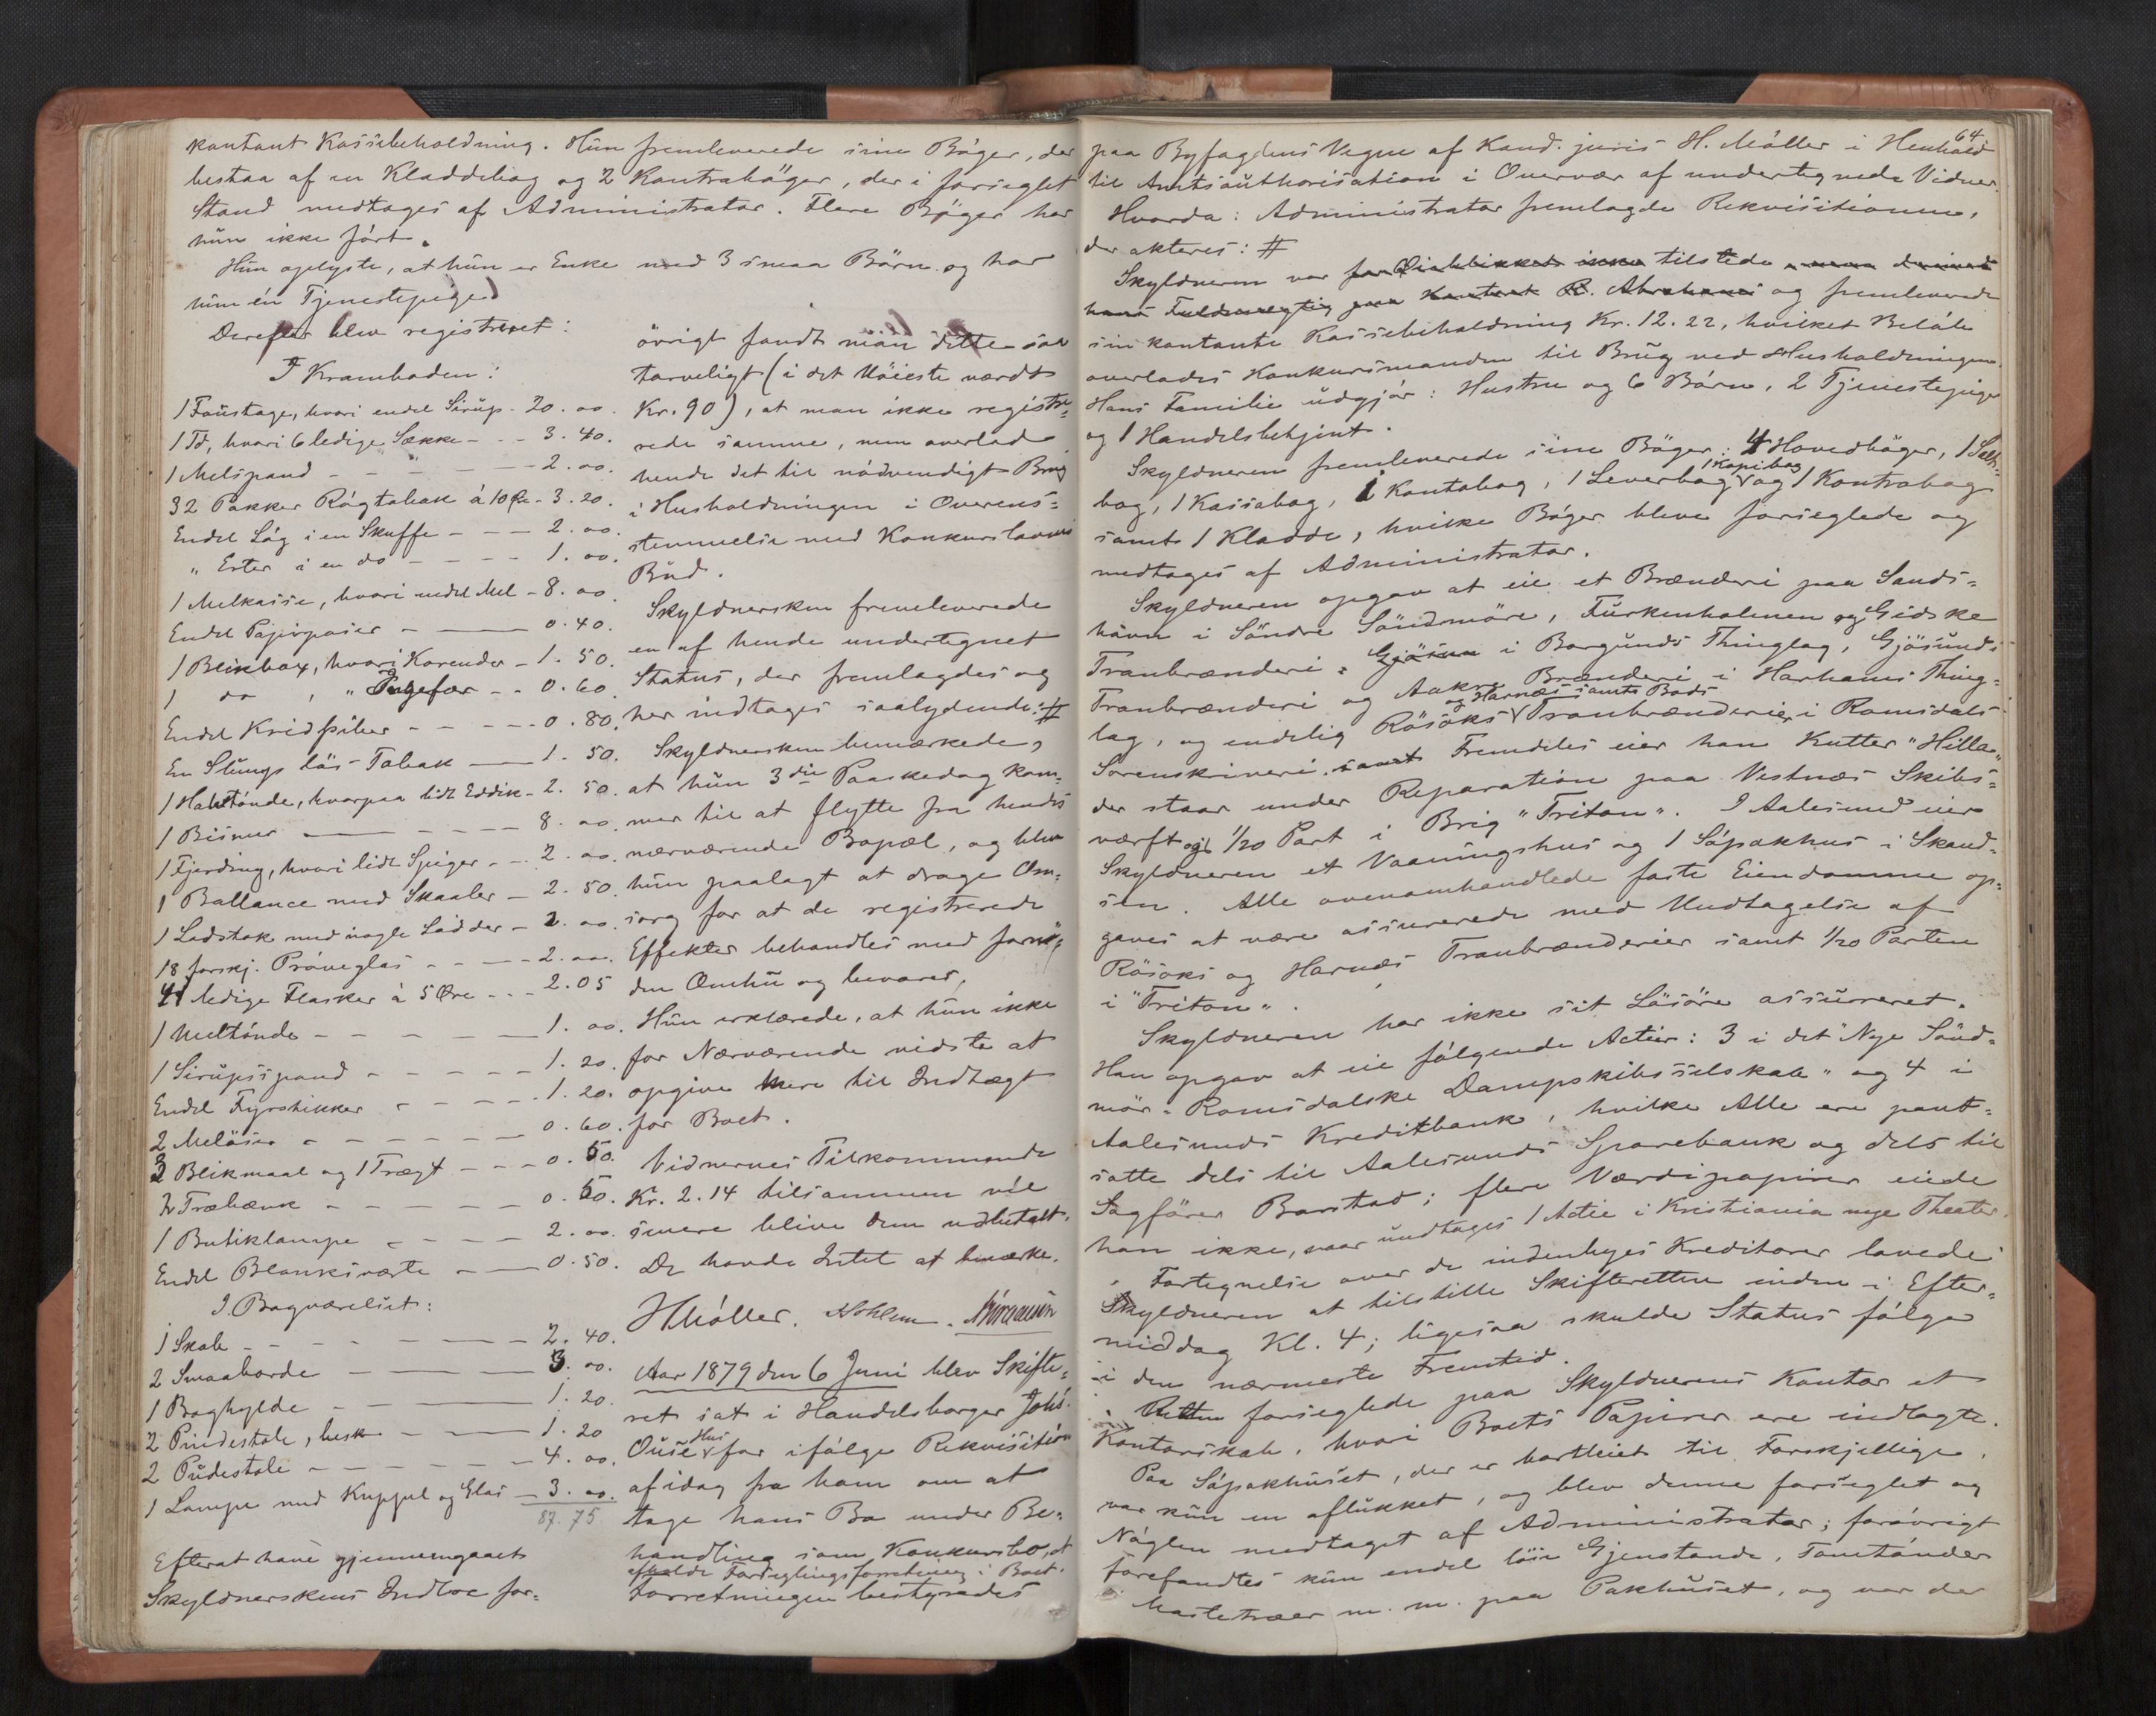 kontant Kassebeholdning. Hun fremleverede sine Bøger, der
bestaa af en Kladdebog og 2 Kontrabøger, der i forseglet
Stand medtages af Administrator. Flere Bøger har
hun ikke ført.
Hun oplyste, at hun er Enke med 3 smaa Børn og har
hun én Tjenestepige.
Derefter blev registreret:
I Kramboden:
1 Foustage, hvori endel Sirup - 20. 00.
1 Td, hvori 6 ledige Sække - - - 3. 40.
1 Melspand - - - - - - 2. 00.
32 Pakker Røgtobak á 10 Øre - 3. 20.
Endel Løg i en Skuffe - - - 2. 00.
" Erter i en do - - - - 1. 00.
1 Melkasse, hvori endel Mel - 8. 00
Endel Papirposer - — 0. 40.
1 Blikbox, hvori Korender - 1. 50.
1 do , " Ingefær - - 0. 60
Endel Kridtpiber - - - - - 0. 80.
En Slumps løs Tobak — 1. 50.
1 Halvtønde, hvorpaa lidt Eddik - 2. 50
1 Bismer — - - - - 8. 00.
1 Fjerding, hvori lidt Spiger - - 2. 00.
1 Ballance med Skaaler - 2. 50
1 Ladstok med nogle Lodder - 2. 00.
18 forskj. Prøveglas - - - - 2. 00.
41 ledige Flasker á 5 Øre - - - 2. 05
1 Meltønde - - - - - 1. 00.
1 Sirupsspand - - - - - - 1. 20.
Endel Fyrstikker - - - - - 1. 20.
2 Meløser - - - - - - 0. 60.
3 Blikmaal og 1 Trægt - - - 0. 50.
2 Træbænk - - - - - 0. 50.
1 Butiklampe - - - - - 2. 00.
Endel Blanksværte - — 0. 50.
I Bagværelset:
1 Skab - - - - — - 2. 40.
2 Smaaborde — — - 3. 00.
1 Boghylde - — — 1. 20.
2 Pindestole, besk - — - 1. 20
2 Pudestole - - - - - 4. 00.
1 Lampe med Kuppel og Glas - 3. 00.
87. 75
Efterat have gjennemgaaet
Skyldnerskens Indbo for-
øvrigt fandt man dette saa
tarveligt (i det Høieste værdt
Kr. 90), at man ikke registre-
rede samme, men overlod
hende det til nødvendigt Brug
i Husholdningen i Overens-
stemmelse med Konkurslovens
Bud.
Skyldnersken fremleverede
en af hende undertegnet
Status, der fremlagdes og
her indtages saalydende: #
Skyldnersken bemærkede,
at hun 3die Paaskedag kom-
mer til at flytte fra hendes
nærværende Bopæl, og blev
hun paalagt at drage Om-
sorg for at de registrerede
Effekter behandles med fornø-
den Omhu og bevares,
Hun erklærede, at hun ikke
for Nærværende vidste at
opgive mere til Indtægt
for Boet.
Vidnernes Tilkommende
Kr. 2. 14 tilsammen vil
senere blive dem udbetalt.
De havde Intet at bemærke.
HMøller.
Aar 1879 den 6 Juni blev Skifte-
ret sat i Handelsborger Johs.
Ouse's Hus for ifølge Rekvisition
af idag fra ham om at
tage hans Bo under Be-
handling som Konkursbo, at
afholde Forseglingsforretning i Boet.
Forretningen bestyredes
64
paa Byfogdens Vegne af Kand. juris H. Møller i Henhold
til Amtsauthorisation i Overvær af undertegnede Vidner.
Hvorda: Administrator fremlagde Rekvisitionen,
der akteres: #
Skyldneren var for Øieblikket ikke tilstede
hans Fuldmægtig paa Kontoret R. Abrahams og fremleverede
sin kontante Kassebeholdning Kr. 12. 22, hvilket Beløb
overlades Konkursmanden til Brug ved Husholdningen.
Hans Familie udgjør: Hustru og 6 Børn, 2 Tjenestepiger
og 1 Handelsbetjent.
Skyldneren fremleverede sine Bøger: 4 Hovedbøger, 1 Salt-
bog, 1 Kassabog, 1 Kontobog, 1 Leverbog, 1 Kopibog og 1 Kontrabog
samt 1 Kladde, hvilke Bøger bleve forseglede og
medtages af Administrator.
Skyldneren opgav at eie et Brænderi paa Sands-
havn i Søndre Søndmøre, Furkenholmen og Gidske
Tranbrænderi i Borgunds Thinglag, Gjøsunds
Tranbrænderi og Aakre Brænderi i Harhams Thing-
lag, og endelig Røsoks og Harnæs samt Bods Tranbrænderier i Romsdals
Sorenskriveri. samt Fremdeles eier han Kutter "Hilla",
der staar under Reparation paa Vestnæs Skibs-
værft og 1/20 Part i Brig "Triton". I Aalesund eier
Skyldneren et Vaaningshus og 1 Søpakhus i Skand-
sen. Alle ovenomhandlede faste Eiendomme op-
gaves at være assurerede med Undtagelse af
Røsoks og Harnæs Tranbrænderier samt 1/20 Parten
i "Triton".
Skyldneren har ikke sit Løsøre assureret.
Han opgav at eie følgende Actier: 3 i det "Nye Sønd-
mør-Romsdalske Dampskibsselskab" og 4 i
Aalesunds Kreditbank, hvilke Alle ere pant-
satte dels til Aalesunds Sparebank og dels til
Sagfører Barstad; flere Værdipapirer eiede
han ikke, naar undtages 1 Actie i Kristiania nye Theater.
Fortegnelse over de indenbyes Kreditorer lovede
Skyldneren at tilstille Skifteretten inden i Efter-
middag Kl. 4; ligesaa skulde Status følge
i den nærmeste Fremtid.
Retten forseglede paa Skyldnerens Kontor et
Kontorskab, hvori Boets Papirer ere indlagte.
Paa Søpakhuset, der er bortleiet til Forskjellige,
var kun en aflukket, og blev denne forseglet og
Nøglen medtaget af Administrator; forøvrigt
forefandtes kun endel løse Gjenstande, Tomtønder
Mastetræer m. m. paa Pakhuset, og var der